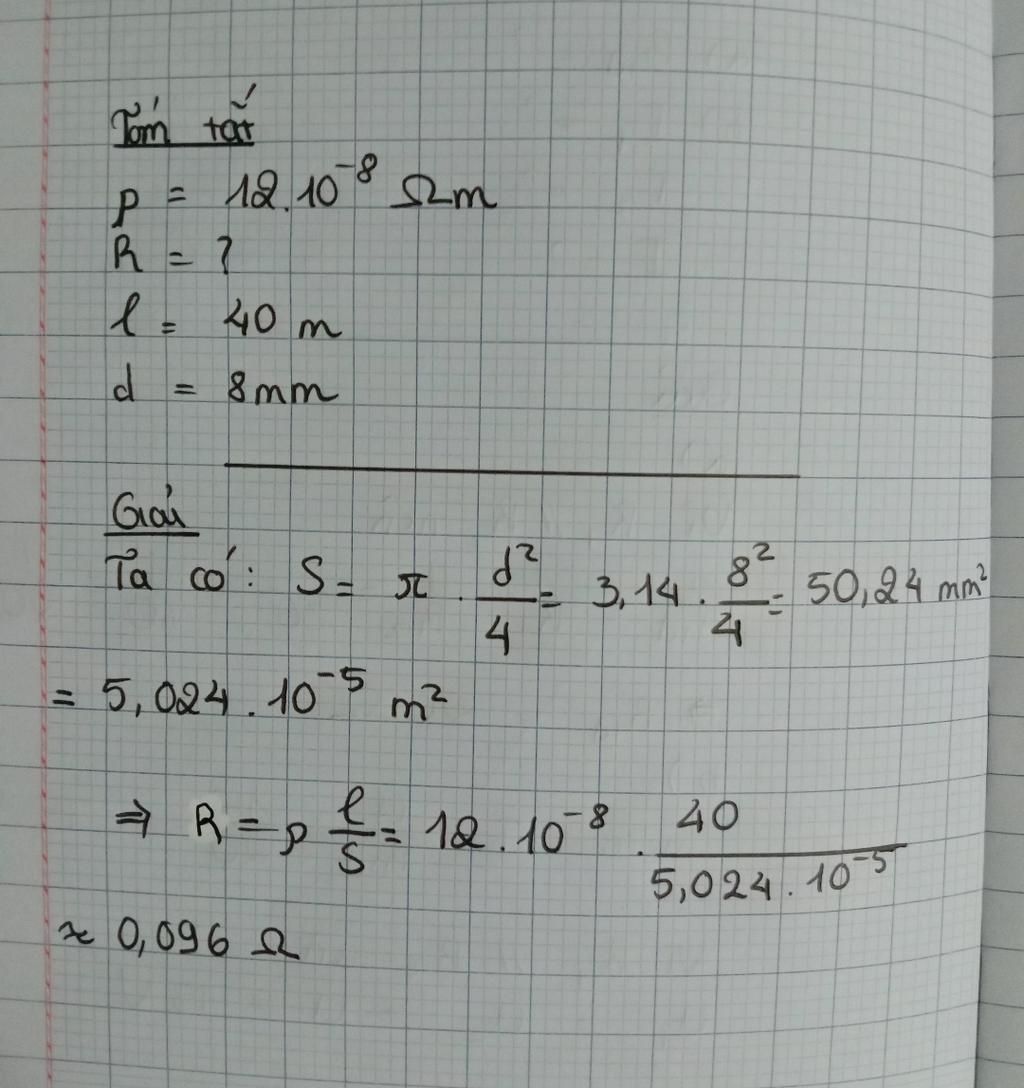 Tóm tắt
ρ = 12.10⁻⁸ Ωm
R = ?
l = 40 m
d = 8mm
Giải
Ta có: S = π . d²/4 = 3,14 . 8²/4 = 50,24 mm²
= 5,024 . 10⁻⁵ m²
⇒ R = ρ l/S = 12 . 10⁻⁸ . 40/5,024 . 10⁻⁵
≈ 0,096 Ω